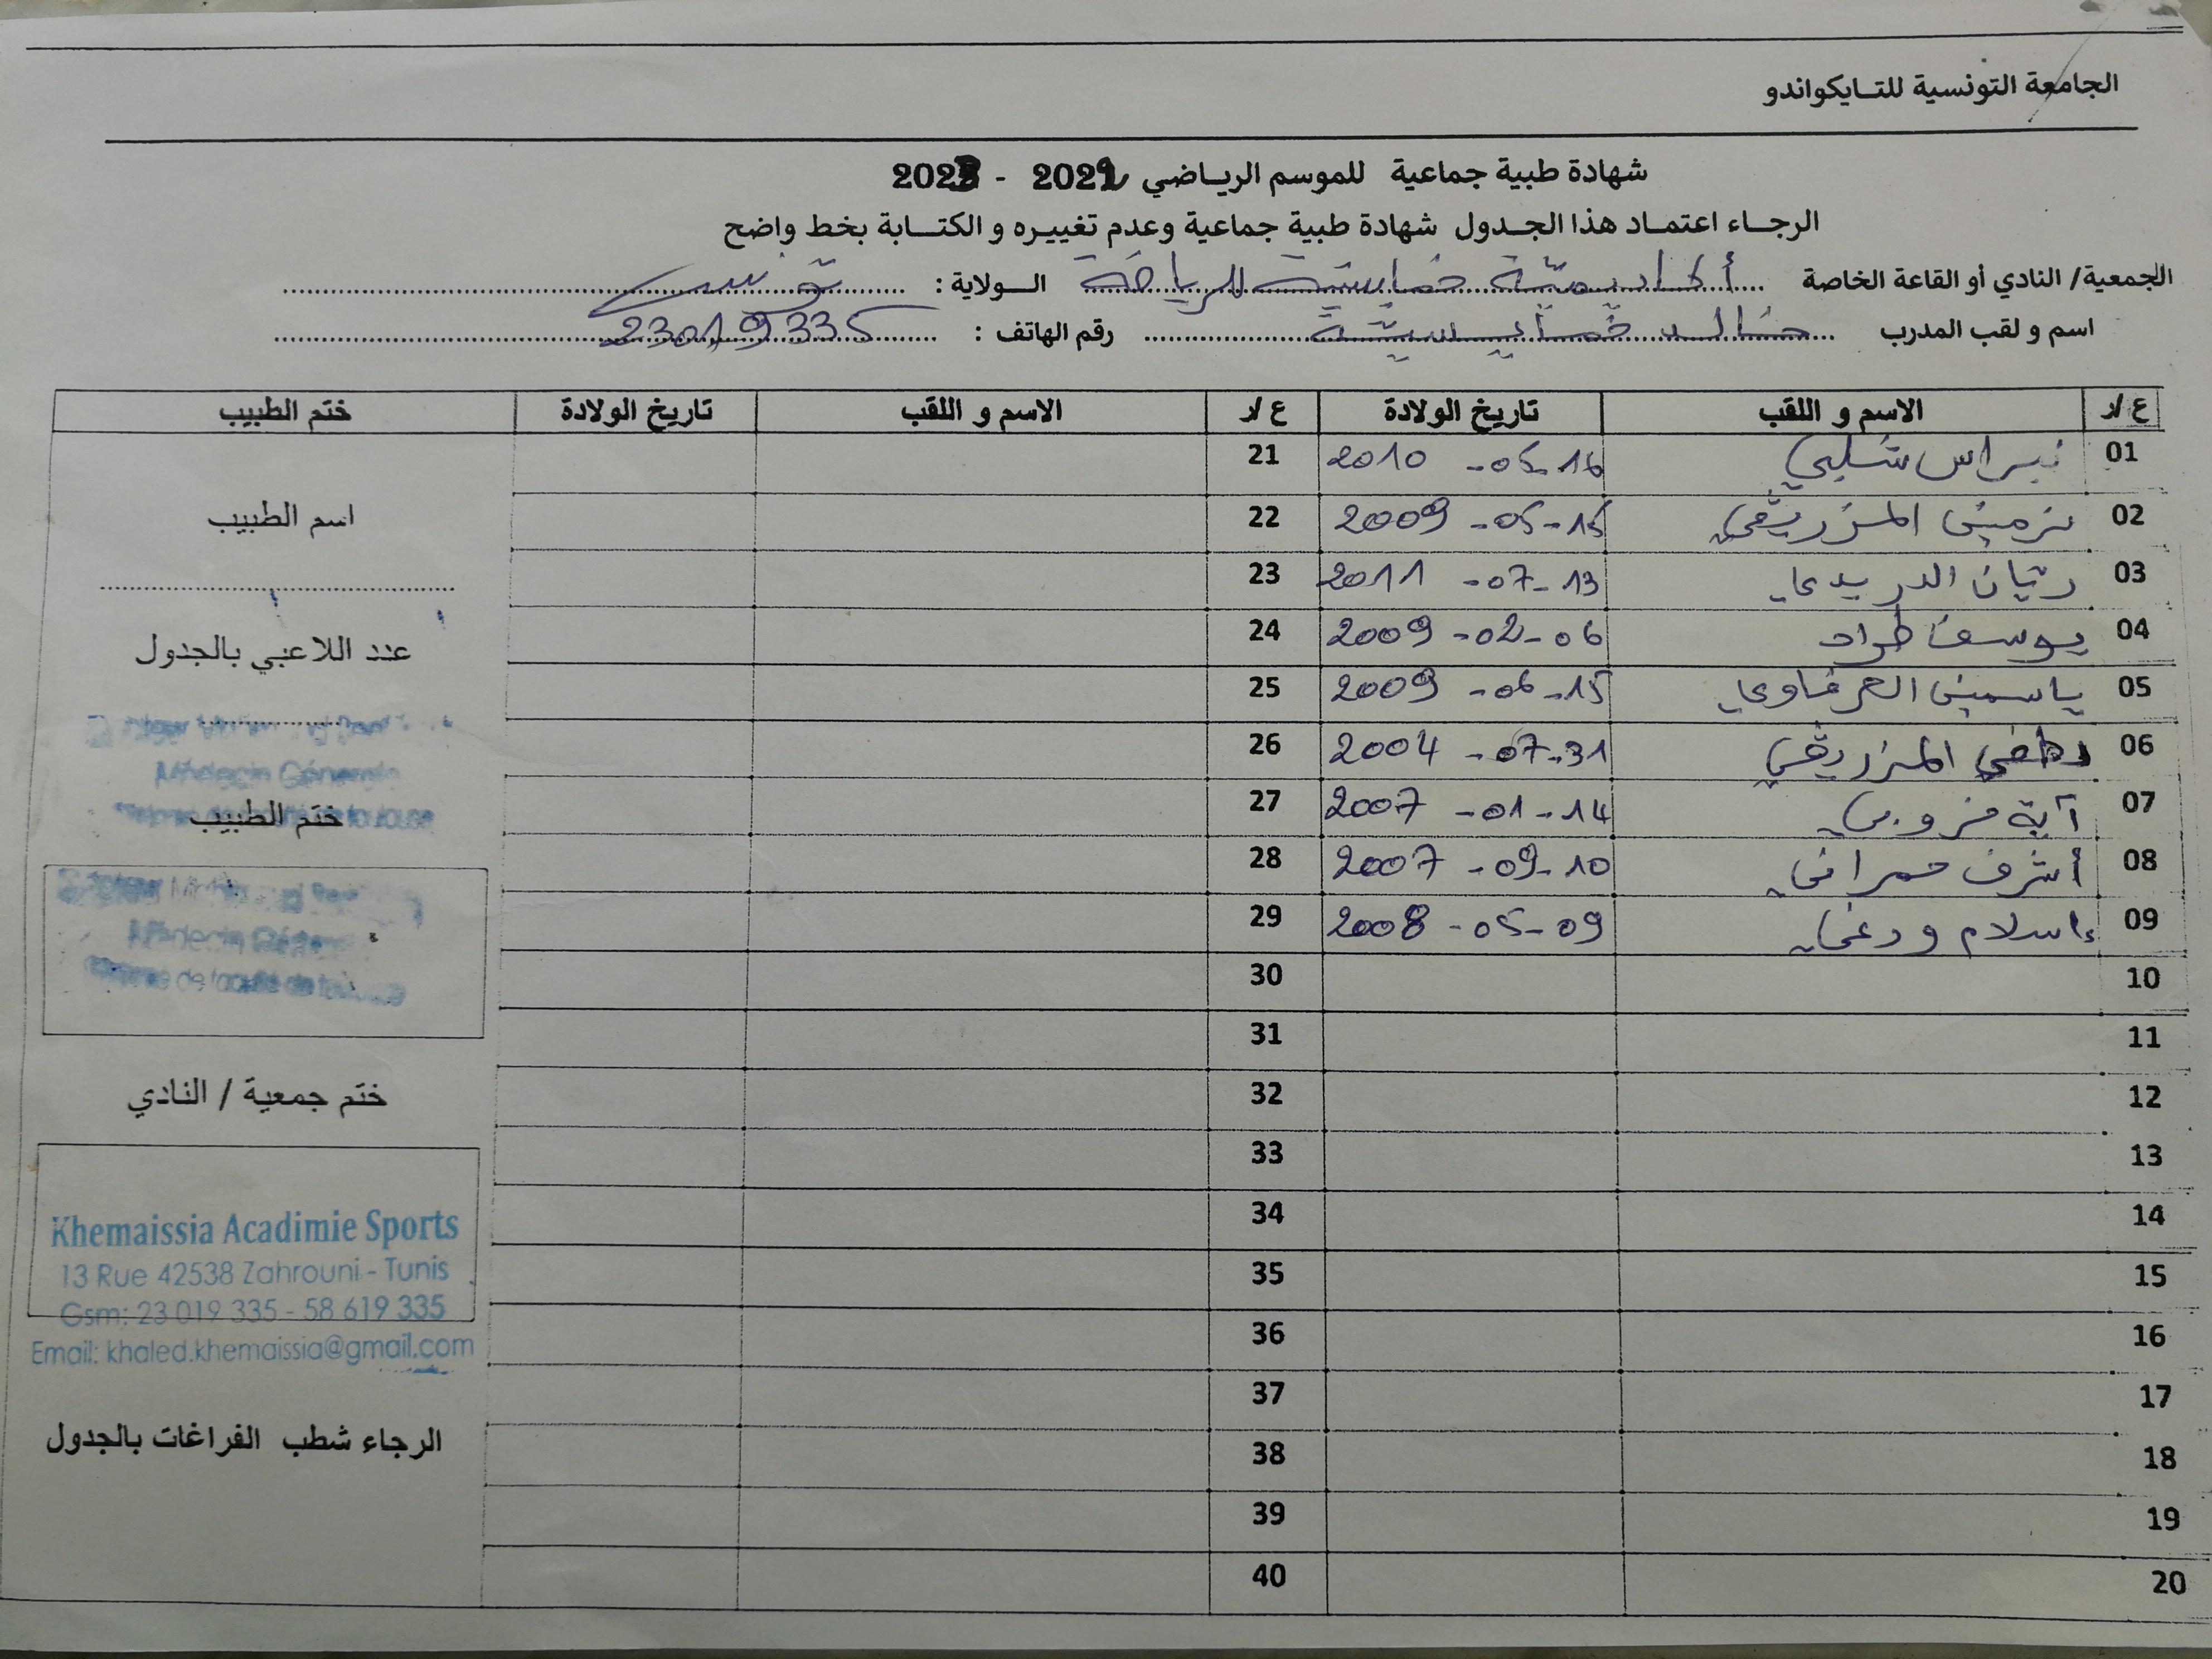 الجامعة التونسية للتايكواندو
شهادة طبية جماعية للموسم الرياضي 2022 - 2023
الرجاء اعتماد هذا الجدول شهادة طبية جماعية وعدم تغييره و الكتابة بخط واضح
الجمعية/ النادي أو القاعة الخاصة أكاديمية خمايسية للرياضة الولاية : تونس
اسم و لقب المدرب خالد خمايسية رقم الهاتف : 23019335
ع/د الاسم و اللقب تاريخ الولادة ع/د الاسم و اللقب تاريخ الولادة ختم الطبيب
01 نبراس شلبي 16-05-2010 21
02 نرمين المزريقي 15-05-2009 22
03 ريان الدريدي 13-07-2011 23
04 يوسف طراد 06-02-2009 24
05 ياسمين العرفاوي 15-06-2009 25
06 المزريقي 31-07-2004 26
07 آية 14-01-2007 27
08 أشرف حمراني 10-09-2007 28
09 إسلام ودغي 09-05-2008 29
10 30
11 31
12 32
13 33
14 34
15 35
16 36
17 37
18 38
19 39
20 40
اسم الطبيب
عدد اللاعبي بالجدول
Médecin Générale
ختم الطبيب
Médecin
de faculté de
ختم جمعية / النادي
Khemaissia Acadimie Sports
13 Rue 42538 Zahrouni - Tunis
Gsm: 23 019 335 - 58 619 335
Email: khaled.khemaissia@gmail.com
الرجاء شطب الفراغات بالجدول